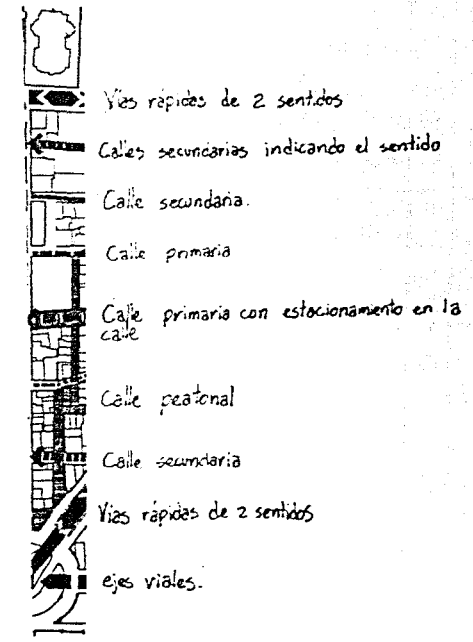 Vías rápidas de 2 sentidos
Calles secundarias indicando el sentido
Calle secundaria.
Calle primaria
Calle primaria con estacionamiento en la
calle
Calle peatonal
Calle secundaria
Vías rápidas de 2 sentidos
ejes viales.